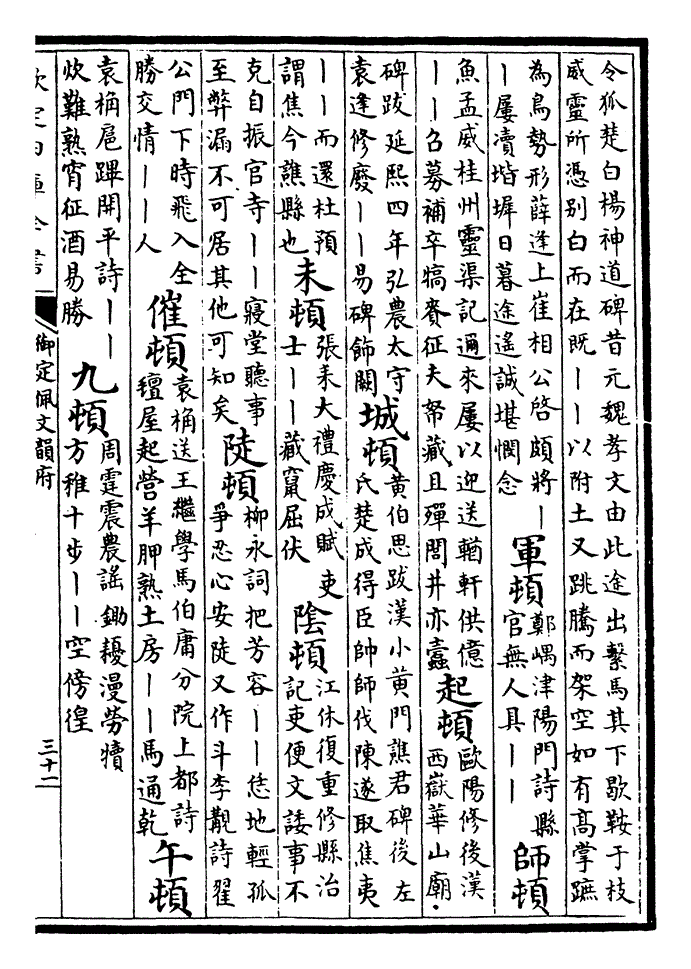 令狐楚白楊神道碑昔元魏孝文由此途出繫馬其下歇鞍于枝
威靈所憑別白而在既丨丨以附土又跳騰而架空如有高掌蹠
為鳥勢形薛逢上崔相公啓頗將丨
丨屢瀆堦墀日暮途遙誠堪憫念
軍頓
鄭嵎津陽門詩縣
官無人具丨丨
師頓
魚孟威桂州靈渠記邇來屢以迎送輶軒供億
丨丨召募補卒犒賚征夫帑藏且殫閭井亦蠹
起頓
歐陽修後漢
西嶽華山廟
碑跋延熙四年弘農太守
袁逢修廢丨丨易碑飾闕
城頓
黄伯思跋漢小黄門譙君碑後左
氏楚成得臣帥師伐陳遂取焦夷
丨丨而還杜預
謂焦今譙縣也
未頓
張耒大禮慶成賦吏
士丨丨藏竄屈伏
陰頓
江休復重修縣治
記吏便文諉事不
克自振官寺丨丨寢堂聽事
至弊漏不可居其他可知矣
陡頓
柳永詞把芳容丨丨恁地輕孤
爭忍心安陡又作斗李觀詩翟
公門下時飛入全
勝交情丨丨人
催頓
袁桷送王繼學馬伯庸分院上都詩
氊屋起營羊胛熟土房丨丨馬通乾
午頓
袁桷扈蹕開平詩丨丨
炊難熟宵征酒易勝
九頓
周霆震農謡鋤耰漫勞犢
方稚十步丨丨空傍徨
欽定四庫全書
御定佩文韻府
三十二